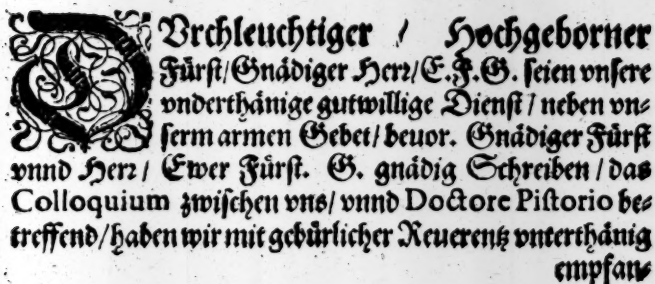 DUrchleuchtiger / Hochgeborner
Fürst/Gnädiger Herr/E.F.G. seien vnsere
vnderthänige gutwillige Dienst / neben vn-
serm armen Gebet/ beuor. Gnädiger Fürst
vnnd Herr/ Ewer Fürst. G. gnädig Schreiben / das
Colloquium zwischen vns/ vnnd Doctore Pistorio be-
treffend/haben wir mit gebürlicher Reuerentz vnterthänig
empfan-